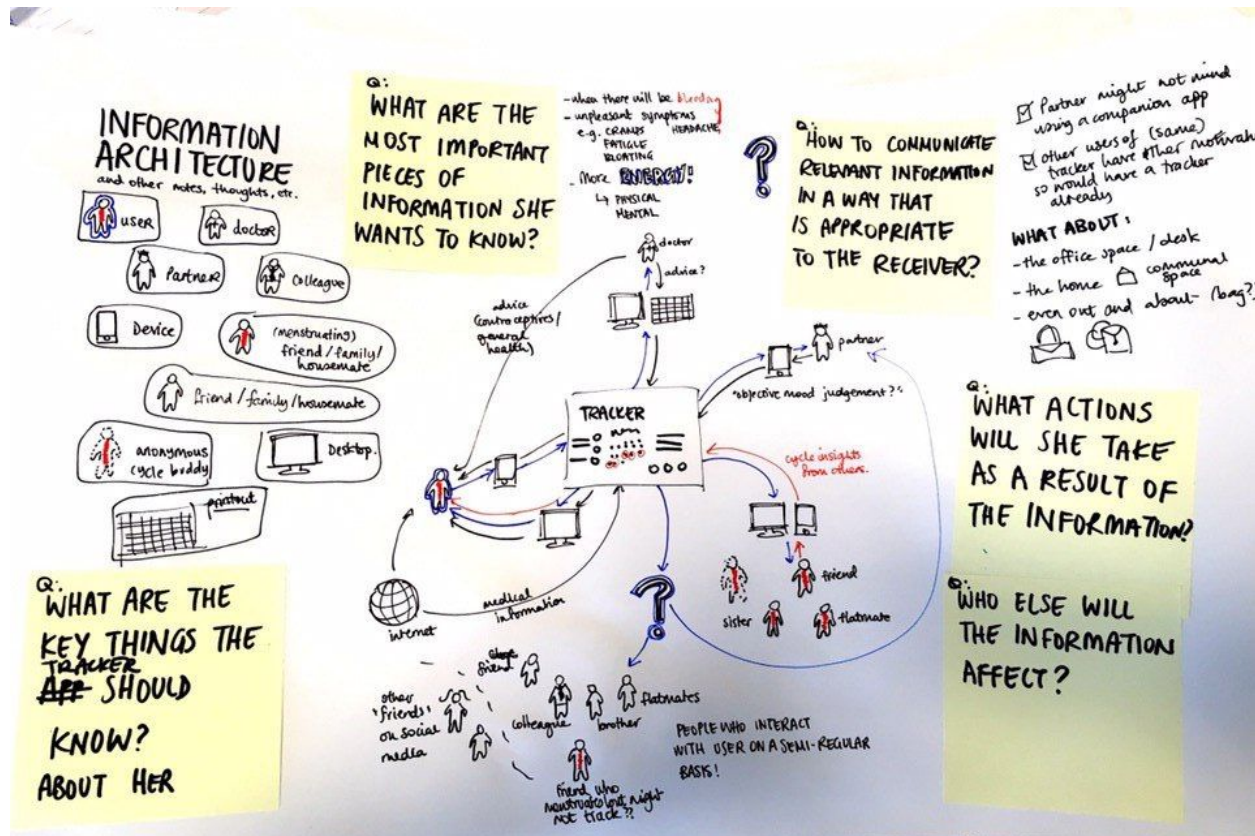 INFORMATION
ARCHITECTURE
and other notes, thoughts, etc.
user
doctor
Partner
Colleague
Device
(menstruating)
friend/family/
housemate
friend/family/housemate
anonymous
cycle buddy
Desktop.
printout
Q:
WHAT ARE THE
KEY THINGS THE
TRACKER
APP SHOULD
KNOW?
ABOUT HER
Q:
WHAT ARE THE
MOST IMPORTANT
PIECES OF
INFORMATION SHE
WANTS TO KNOW?
- when there will be bleeding
- unpleasant symptoms
e.g. CRAMPS HEADACHE,
FATIGUE
BLOATING
- More ENERGY!
↳ PHYSICAL
MENTAL
doctor
advice?
advice
(contraceptives/
general
health)
TRACKER
partner
"objective mood judgement?"
cycle insights
from others.
friend
sister
flatmate
internet
medical
information
?
friend
other
"friends"
on social
media
colleague
brother
flatmates
friend who
menstruates but might
not track??
PEOPLE WHO INTERACT
WITH USER ON A SEMI-REGULAR
BASIS!
?
Q:
HOW TO COMMUNICATE
RELEVANT INFORMATION
IN A WAY THAT
IS APPROPRIATE
TO THE RECEIVER?
Partner might not mind
using a companion app
other users of (same)
tracker have other
so would have a tracker
already
WHAT ABOUT:
- the office space / desk
- the home communal
space
- even out and about - bag?
Q:
WHAT ACTIONS
WILL SHE TAKE
AS A RESULT OF
THE INFORMATION?
Q:
WHO ELSE WILL
THE INFORMATION
AFFECT?